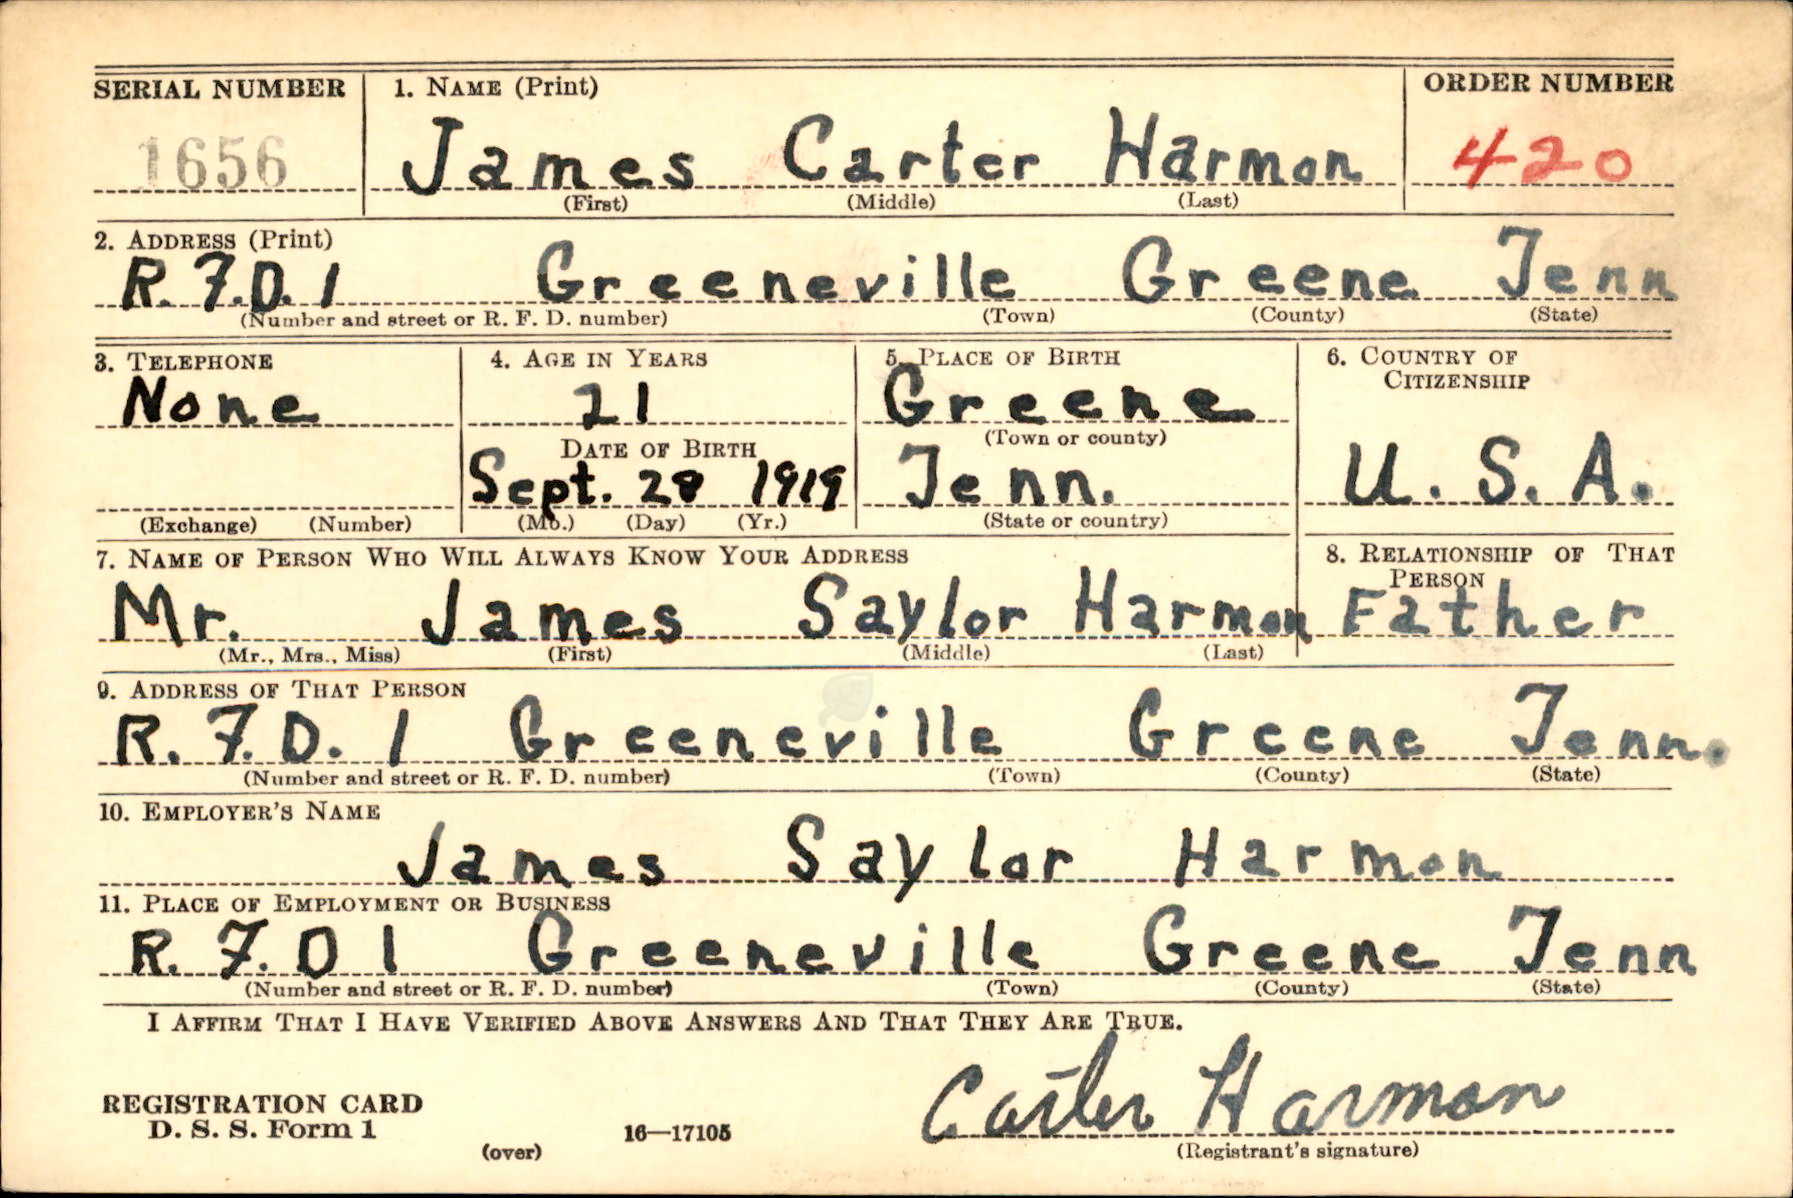 SERIAL NUMBER 1. NAME (Print) ORDER NUMBER
1656 James Carter Harmon 420
(First) (Middle) (Last)
2. ADDRESS (Print)
R. F. D. 1 Greeneville Greene Tenn
(Number and street or R. F. D. number) (Town) (County) (State)
3. TELEPHONE 4. AGE IN YEARS 5. PLACE OF BIRTH 6. COUNTRY OF
CITIZENSHIP
None 21 Greene
DATE OF BIRTH (Town or county)
Sept. 28 1919 Tenn. U. S. A.
(Exchange) (Number) (Mo.) (Day) (Yr.) (State or country)
7. NAME OF PERSON WHO WILL ALWAYS KNOW YOUR ADDRESS 8. RELATIONSHIP OF THAT
PERSON
Mr. James Saylor Harmon Father
(Mr., Mrs., Miss) (First) (Middle) (Last)
9. ADDRESS OF THAT PERSON
R. F. D. 1 Greeneville Greene Tenn.
(Number and street or R. F. D. number) (Town) (County) (State)
10. EMPLOYER'S NAME
James Saylor Harmon
11. PLACE OF EMPLOYMENT OR BUSINESS
R. F. D 1 Greeneville Greene Tenn
(Number and street or R. F. D. number) (Town) (County) (State)
I AFFIRM THAT I HAVE VERIFIED ABOVE ANSWERS AND THAT THEY ARE TRUE.
REGISTRATION CARD
D. S. S. Form 1 16—17105 Carter Harmon
(over) (Registrant's signature)